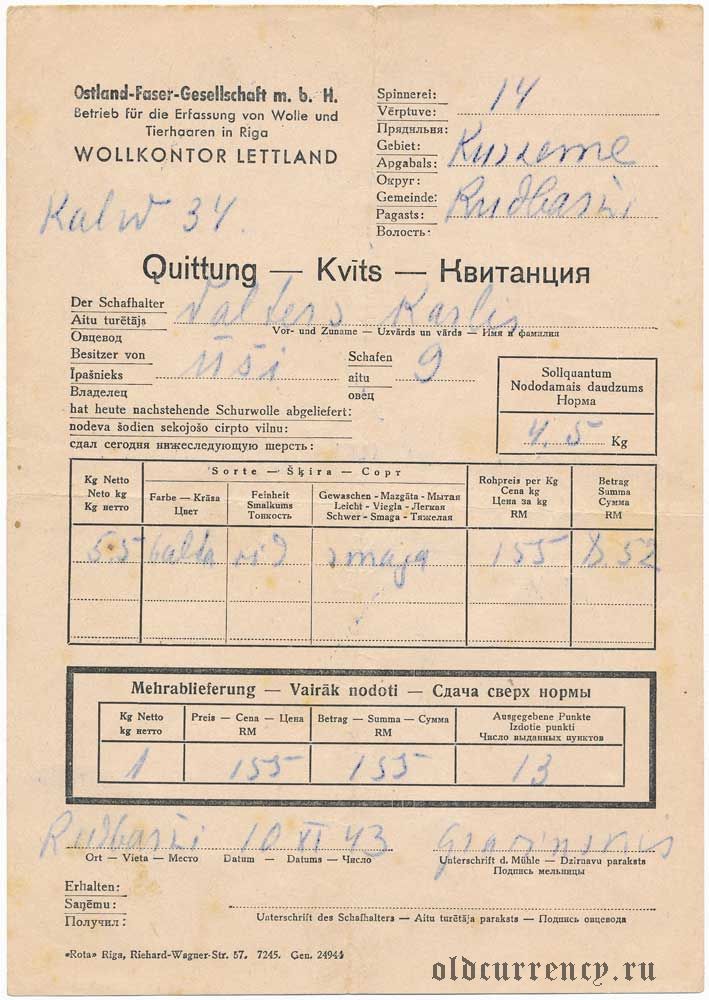 Ostland-Faser-Gesellschaft m. b. H.
Betrieb für die Erfassung von Wolle und
Tierhaaren in Riga
WOLLKONTOR LETTLAND
Spinnerei:
Vērptuve: 14
Прядильня:
Gebiet:
Apgabals: Kurzeme
Округ:
Gemeinde:
Pagasts: Rudbarži
Волость:
34.
Quittung — Kvīts — Квитанция
Der Schafhalter
Aitu turētājs Valters Karlis
Овцевод
Vor- und Zuname — Uzvārds un vārds — Имя и фамилия
Besitzer von Schafen
Īpašnieks Ūši aitu 9
Владелец овец
hat heute nachstehende Schurwolle abgeliefert:
nodeva šodien sekojošo cirpto vilnu:
сдал сегодня нижеследующую шерсть:
Sollquantum
Nododamais daudzums
Норма
4.5 Kg
Kg Netto
Neto kg
Кг нетто
Sorte — Šķira — Сорт
Farbe — Krāsa
Цвет
Feinheit
Smalkums
Тонкость
Gewaschen - Mazgāta - Мытая
Leicht - Viegla - Легкая
Schwer - Smaga - Тяжелая
Rohpreis per Kg
Cena kg
Цена за kg
RM
Betrag
Summa
Сумма
RM
5.5 balta vid smaga 155 8.52
Mehrablieferung — Vairāk nodoti — Сдача сверх нормы
Kg Netto
kg нетто
Preis — Cena — Цена
RM
Betrag — Summa — Сумма
RM
Ausgegebene Punkte
Izdotie punkti
Число выданных пунктов
1 155 155 13
Rudbarži 10 XI 43
Ort — Vieta — Место Datum — Datums — Число
Unterschrift d. Mühle — Dzirnavu paraksts
Подпись мельницы
Erhalten:
Saņēmu:
Получил:
Unterschrift des Schafhalters — Aitu turētāja paraksts — Подпись овцевода
«Rota» Riga, Riehard-Wagner-Str. 57. 7245. Gen. 24944
oldcurrency.ru